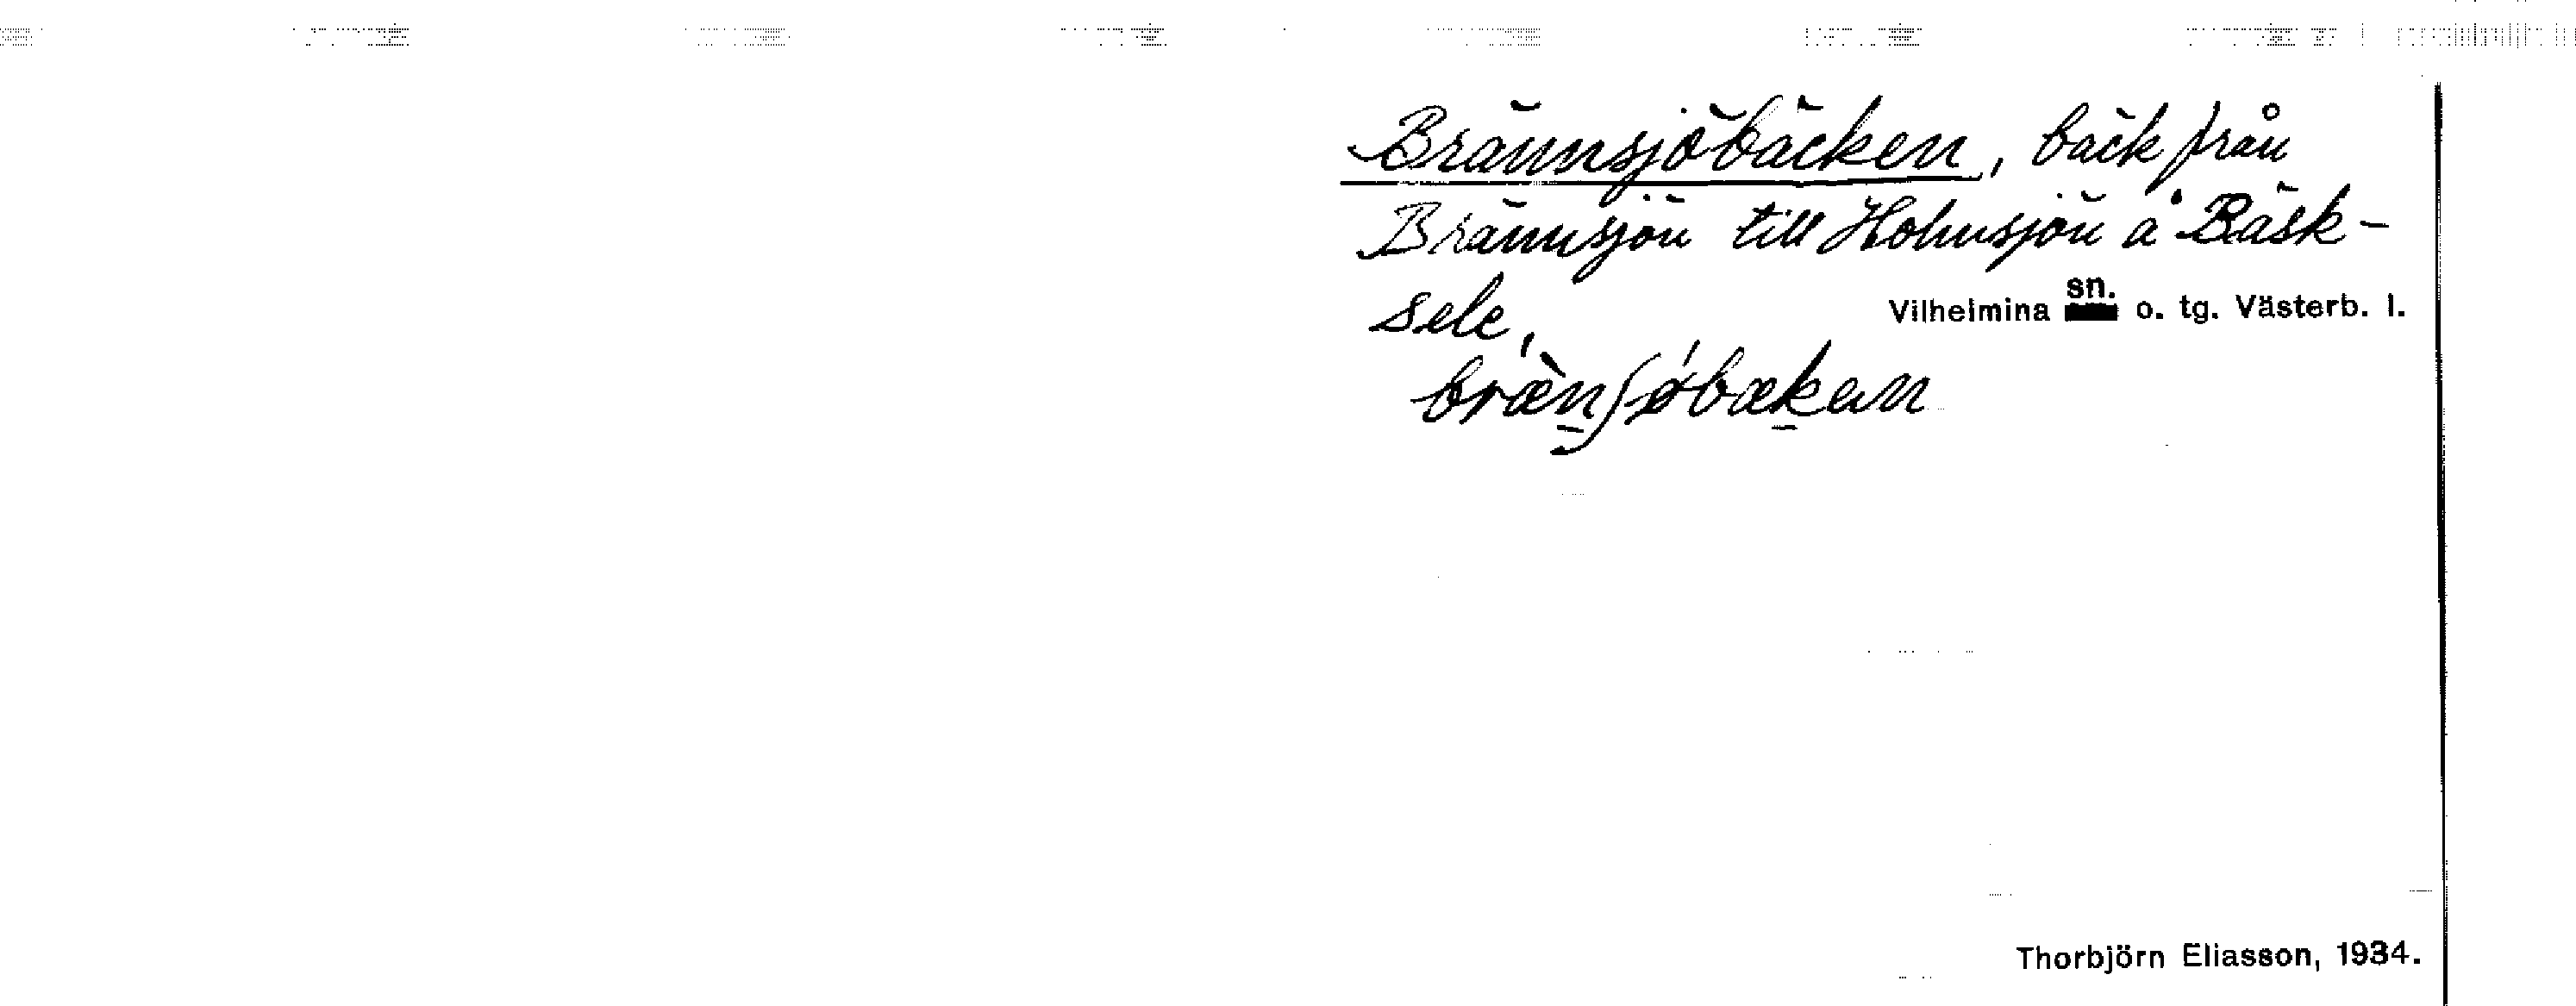 Brännsjöbäcken, bäck från
Brännsjön till Holmsjön å Bäsk-
sele,
Vilhelmina sn. o. tg. Västerb. l.
bræ̀nʃøbækan
Thorbjörn Eliasson, 1934.